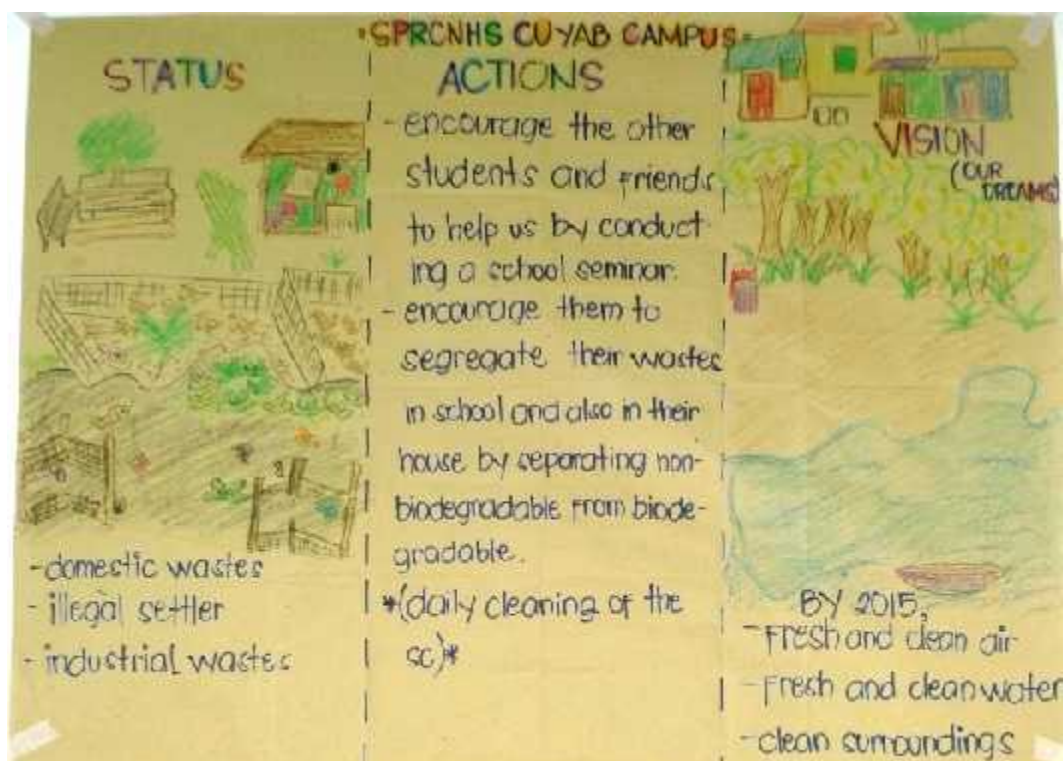 SPRCNHS CUYAB CAMPUS
STATUS
- domestic wastes
- illegal settler
- industrial wastes
ACTIONS
- encourage the other
students and friends
to help us by conduct-
ing a school seminar.
- encourage them to
segregate their wastes
in school and also in their
house by separating non-
biodegradable from biode-
gradable.
*(daily cleaning of the
sc)*
VISION
(OUR
DREAMS)
BY 2015,
- Fresh and clean air
- Fresh and clean water
- clean surroundings